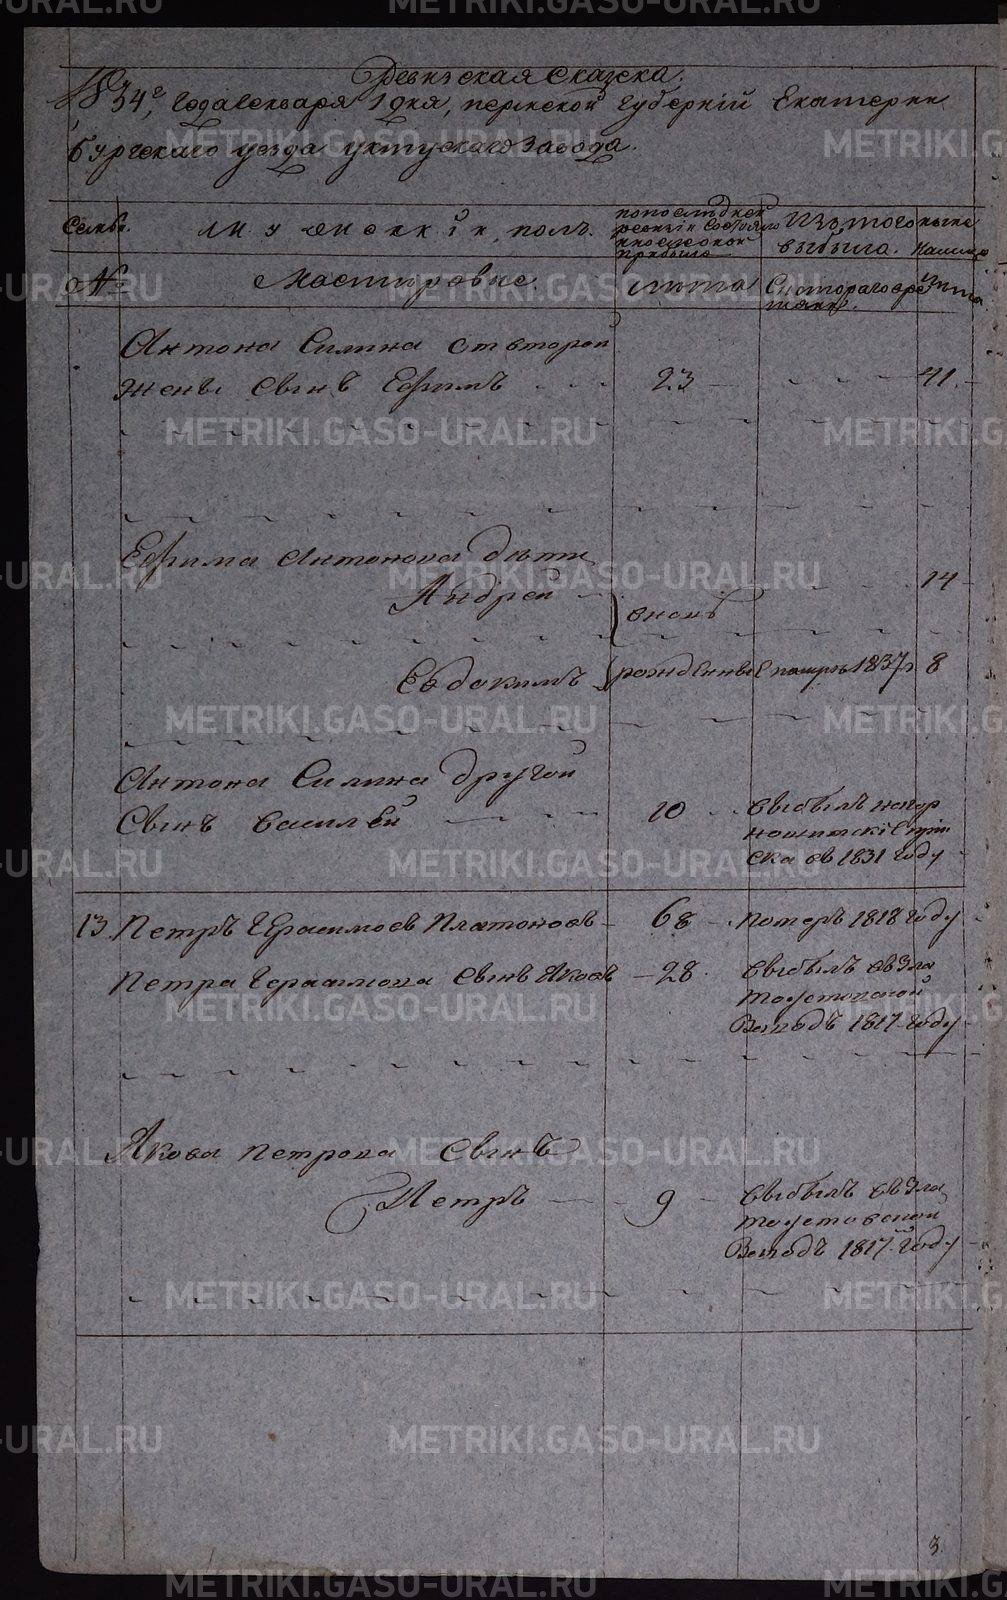 Ревизская Сказка.
1834г, Года Генваря 1 дня, пермской Губерніи Екатерин
бургскаго уезда уктускаго Завода.
Семьи. мужескій полъ. попоследней ревизіи состояло ипосле оной прибыло Изтого выбыло. ныне налицо
№ Мастировые. лета Скотораго времяни. лета
Антона Силина от второй
жены Сынъ Ефимъ 23 41
Ефима Антонова дети
Андрей 14
вновь
Евдокимъ рожденные 8
Антона Силина другой
Сынъ Василей 10 выбылъ
в 1831 году
13. Петръ Герасимовъ Платоновъ 68 померъ 1818 году
Петра Герасимова Сынъ Яковъ 28 выбылъ в Зла
тоустовской
Заводъ 1817 году
Якова Петрова Сынъ
Петръ 9 выбылъ в Зла
тоустовской
Заводъ 1817 году
3.
METRIKI.GASO-URAL.RU